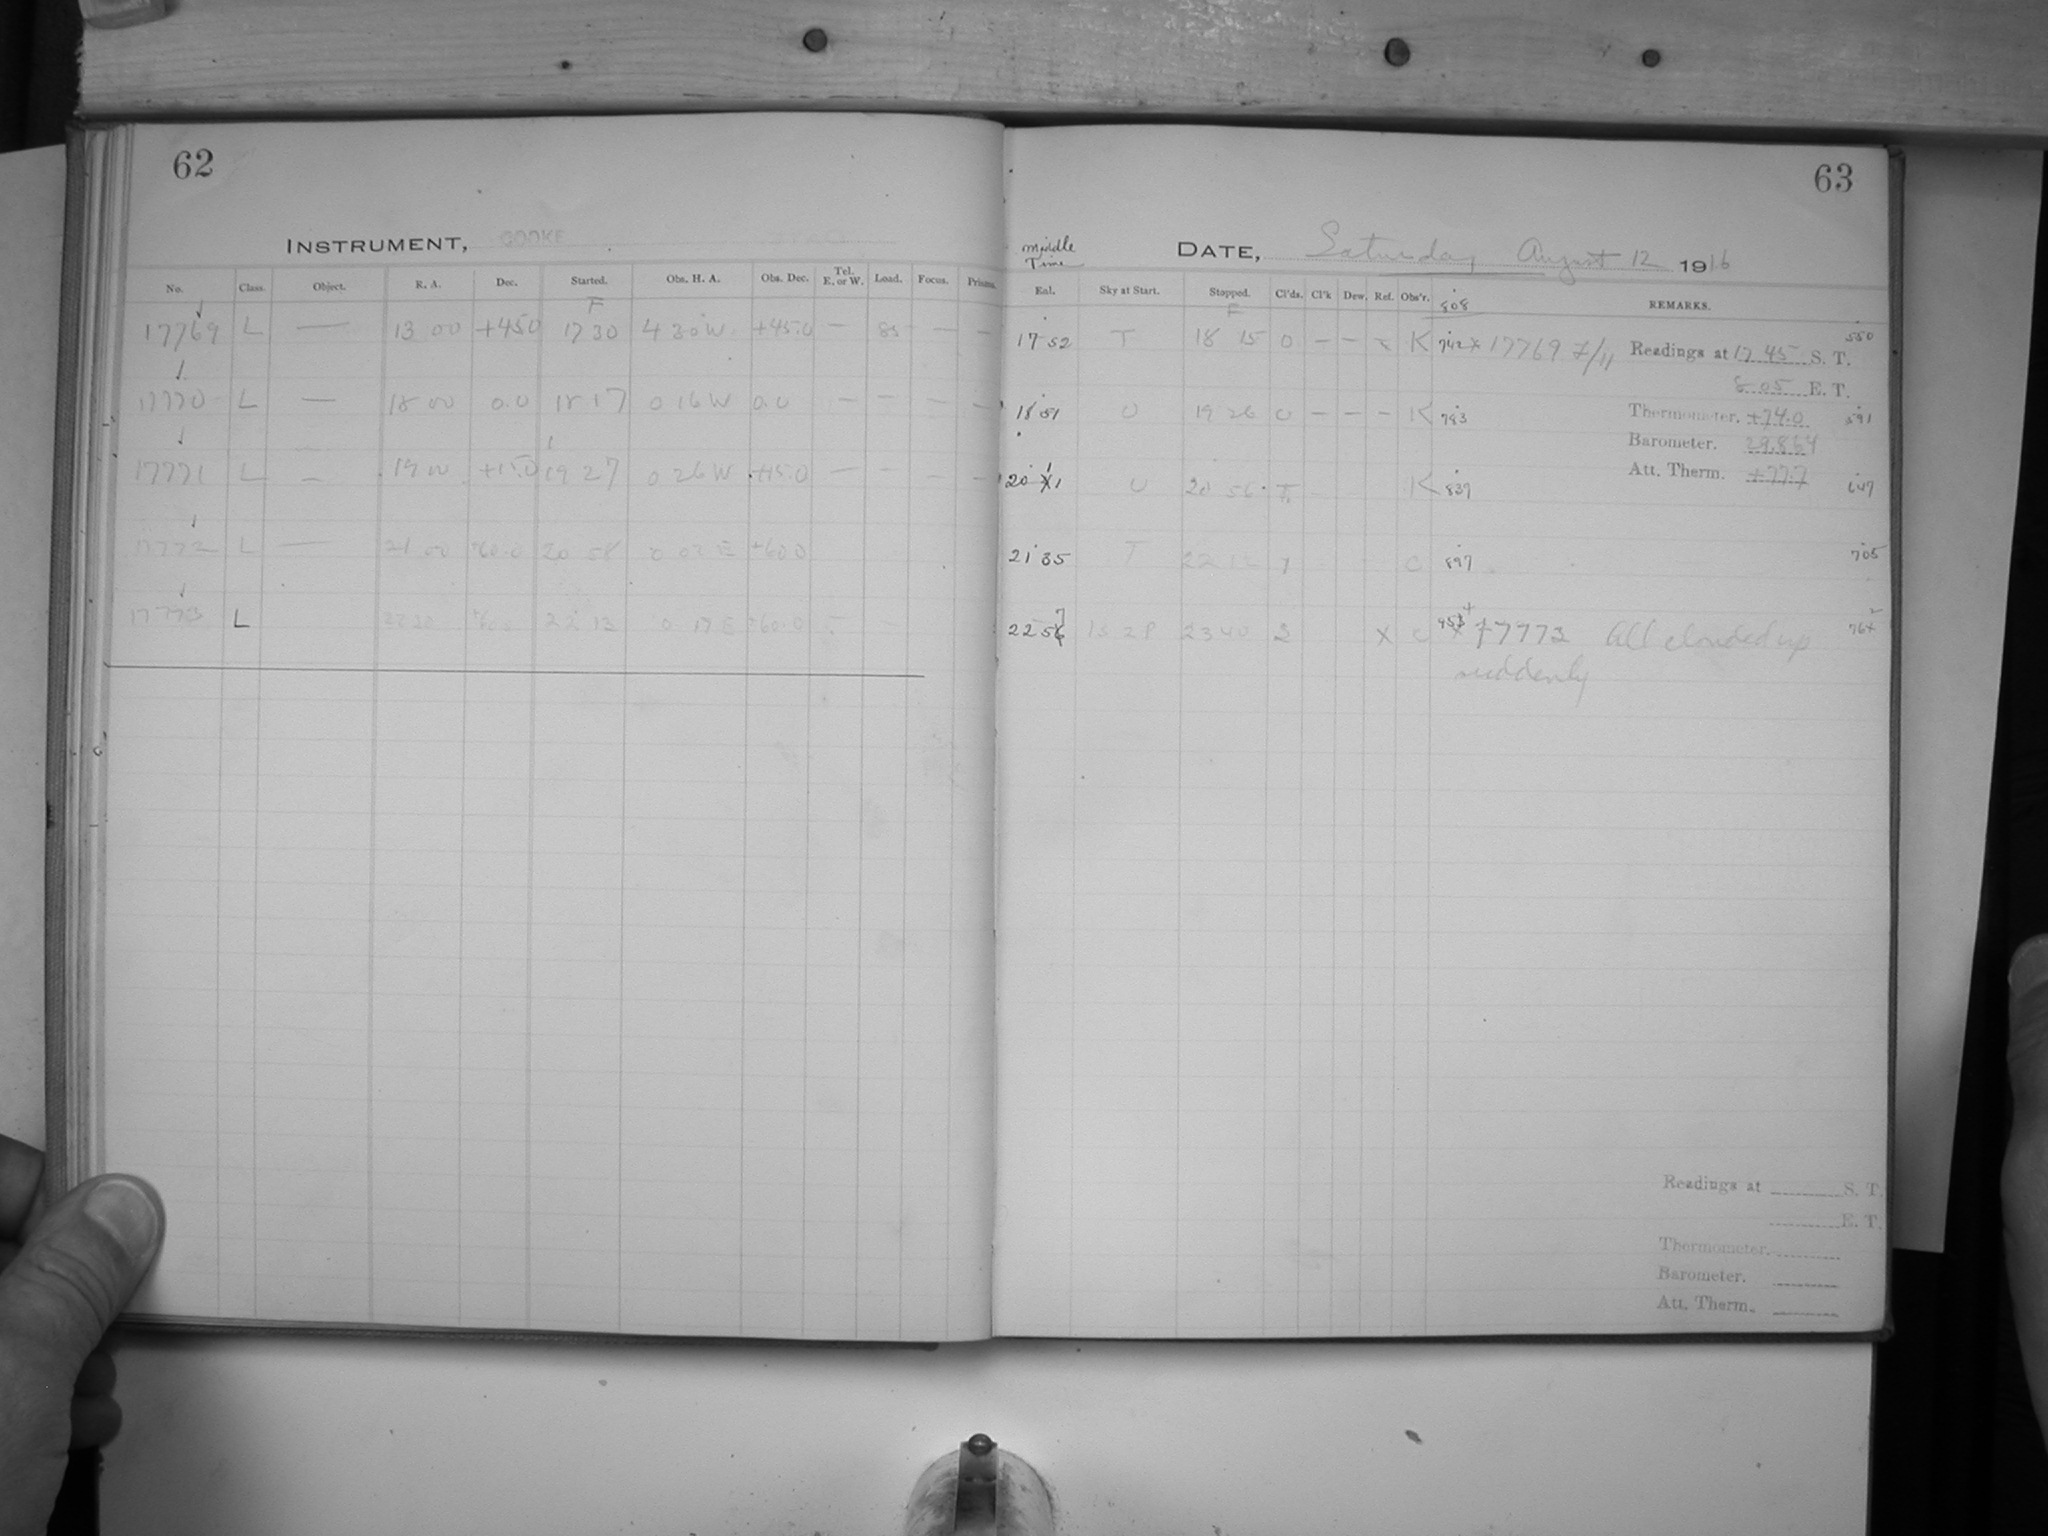 62
INSTRUMENT, COOKE
No. Class. Object. R. A. Dec. Started. Obs. H. A. Obs. Dec. Tel. E. or W. Load. Focus. Prisms.
F
17769 L — 13 00 +45.0 17 30 4 30 W +45.0 — 85 — —
17770 L — 18 00 0.0 18 17 0 16 W 0.0 — — — —
17771 L — 19 00 +15.0 19 27 0 26 W +15.0 — — —
17772 L — 21 00 +60.0 20 58 0 02 E +60.0
17773 L 0 17 E +60.0
63
Middle Time
DATE, Saturday August 12 1916
Eal. Sky at Start. Stopped. Cl'ds. Cl'k Dew. Ref. Obs'r. 808 REMARKS.
F
17 52 T 18 15 0 — — x K 742 x 17769 F/11 Readings at 17 45 S. T. 550
8 05 E. T.
18 51 U 19 26 0 — — — K 783 Thermometer. +74.0 591
Barometer. 29.864
20 11 U 20 56 K 839 Att. Therm. +77.7 647
21 35 T 22 12 C 897 705
22 57 23 40 2 x C x 17773 All clouded up
suddenly
Readings at S. T.
E. T.
Thermometer.
Barometer.
Att. Therm.